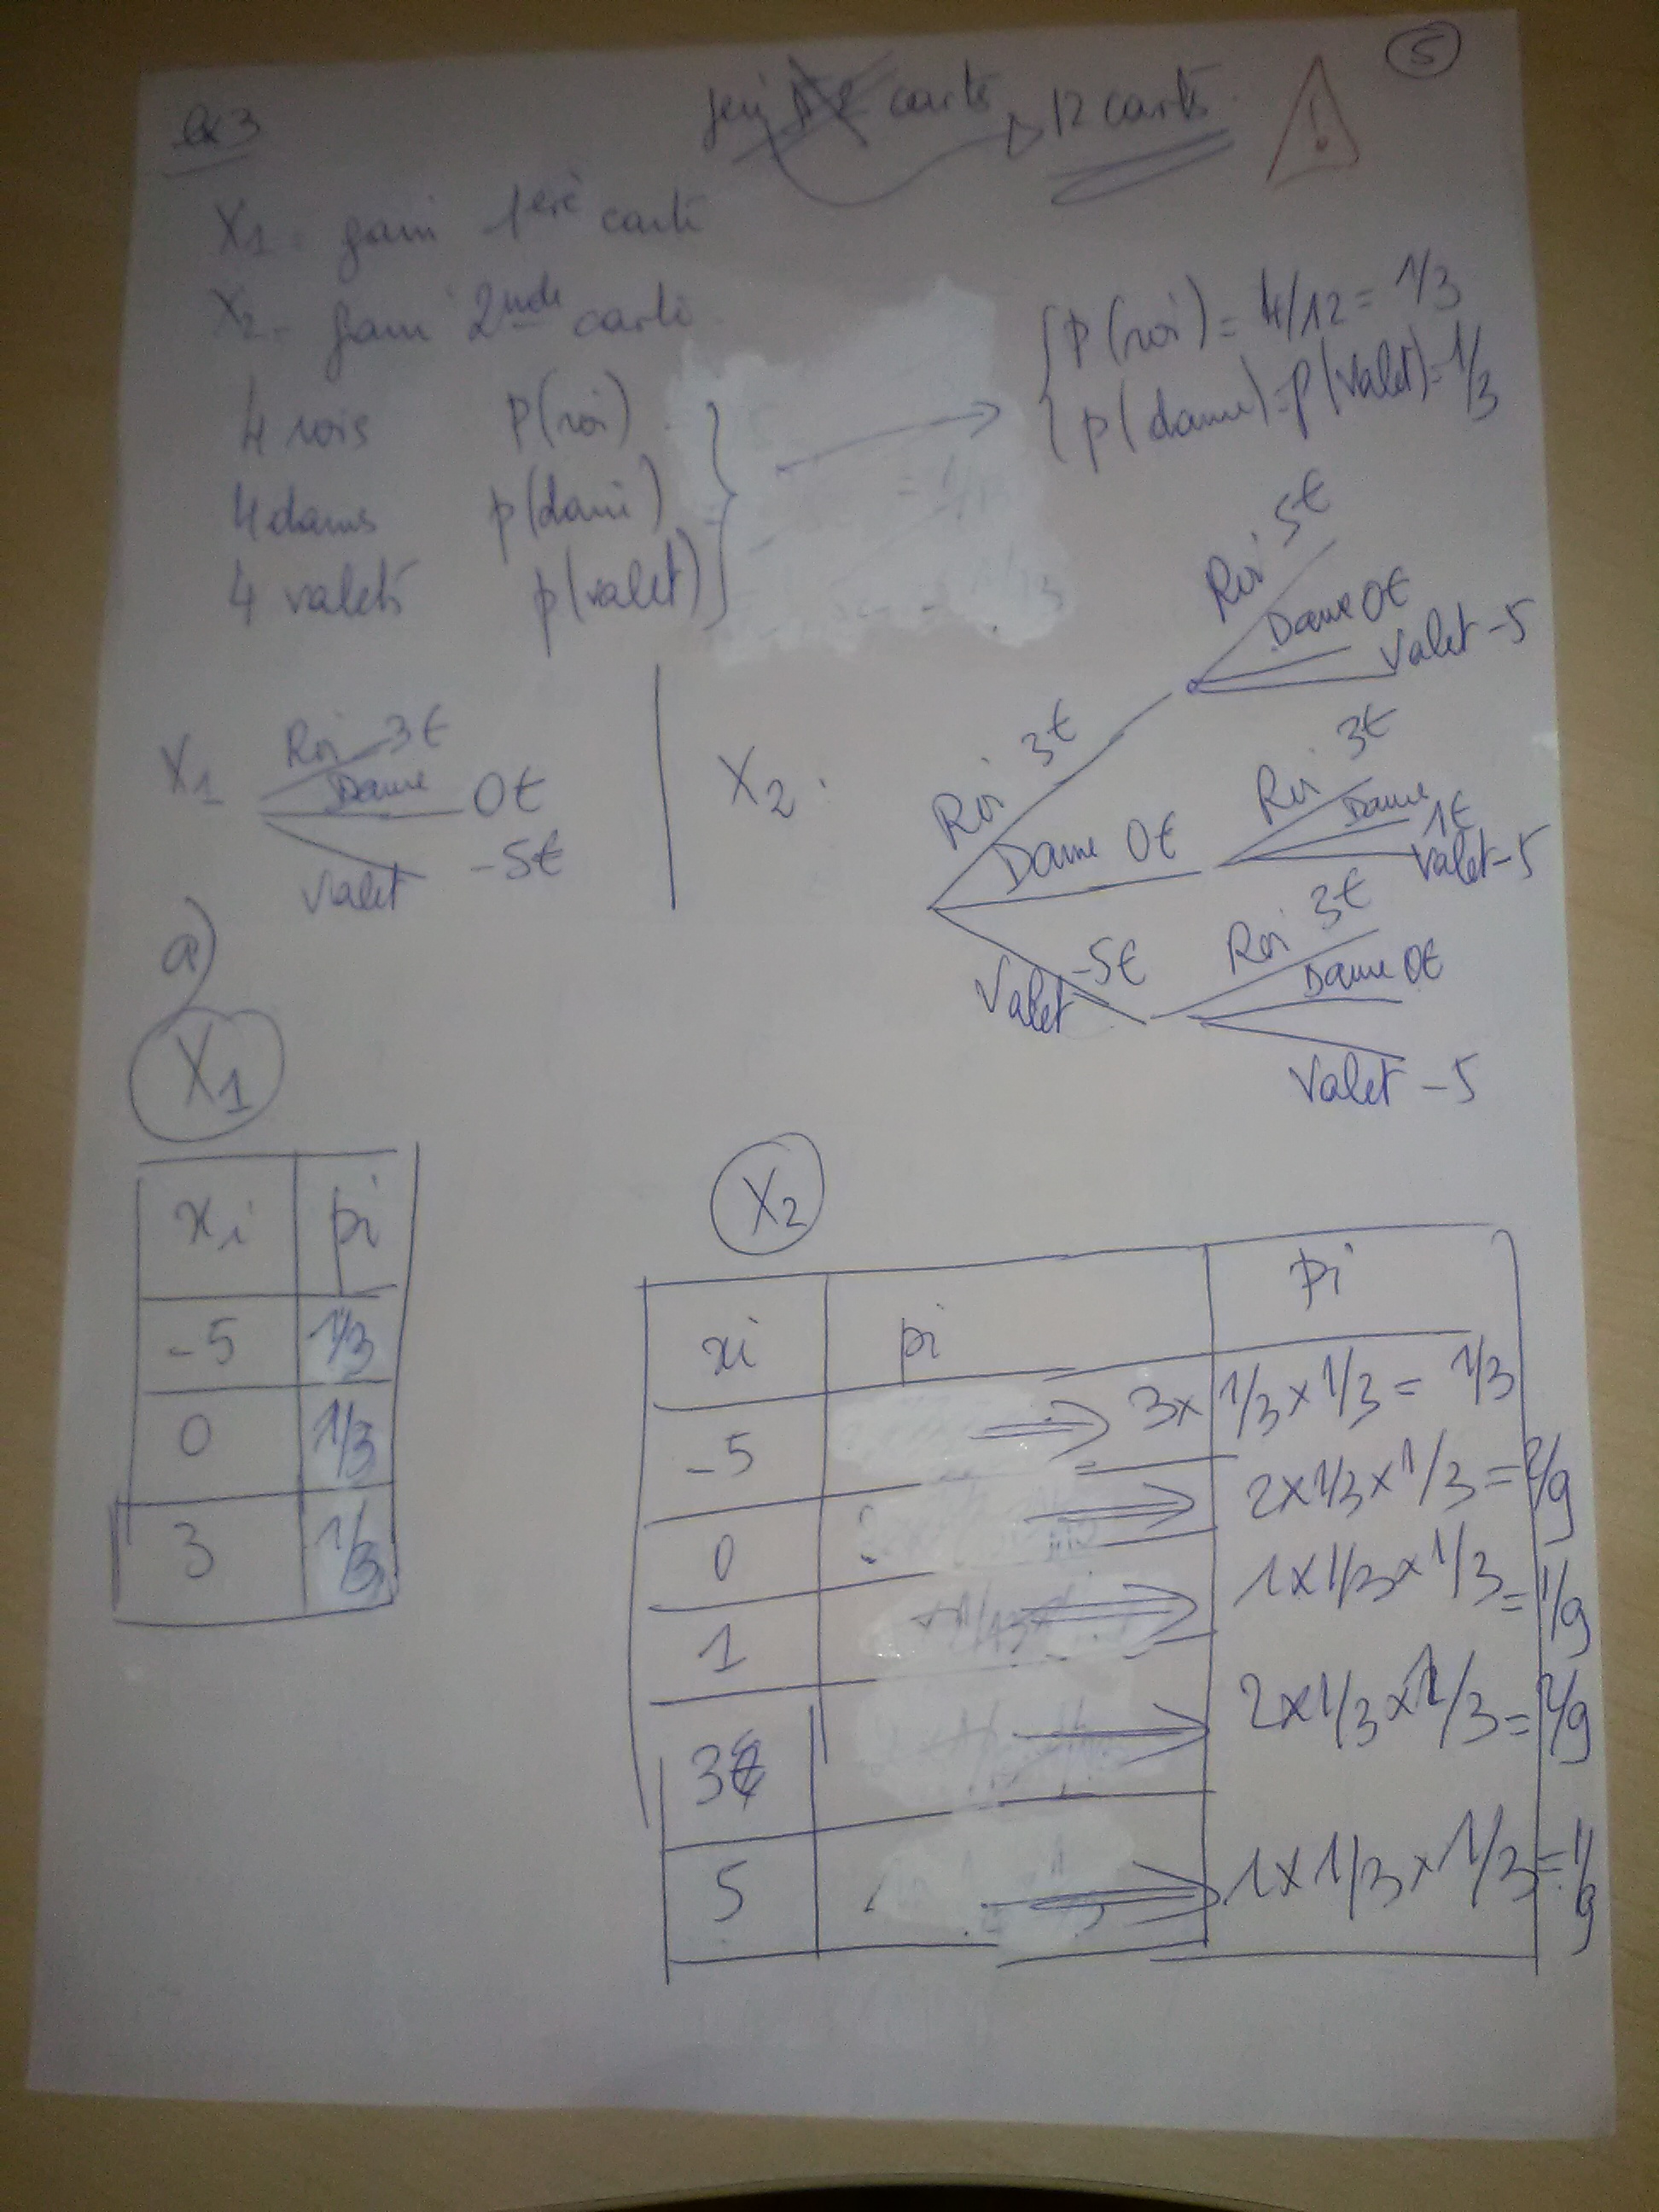 5
ex 3
cartes 12 cartes
X1 = gain 1ère carte
X2 = gain 2nde carte
4 rois p(roi)
4 dames p(dame)
4 valets p(valet)
P(roi) = 4/12 = 1/3
p(dame) = p(valet) = 1/3
X1
Roi 3€
Dame 0€
Valet -5€
X2
Roi 3€
Roi 5€
Dame 0€
Valet -5
Dame 0€
Roi 3€
Dame 1€
Valet -5
Valet -5€
Roi 3€
Dame 0€
Valet -5
a)
X1
xi pi
-5 1/3
0 1/3
3 1/3
X2
xi pi pi
-5 ⇒ 3 x 1/3 x 1/3 = 1/3
0 ⇒ 2 x 1/3 x 1/3 = 2/9
1 ⇒ 1 x 1/3 x 1/3 = 1/9
3 ⇒ 2 x 1/3 x 1/3 = 2/9
5 ⇒ 1 x 1/3 x 1/3 = 1/9